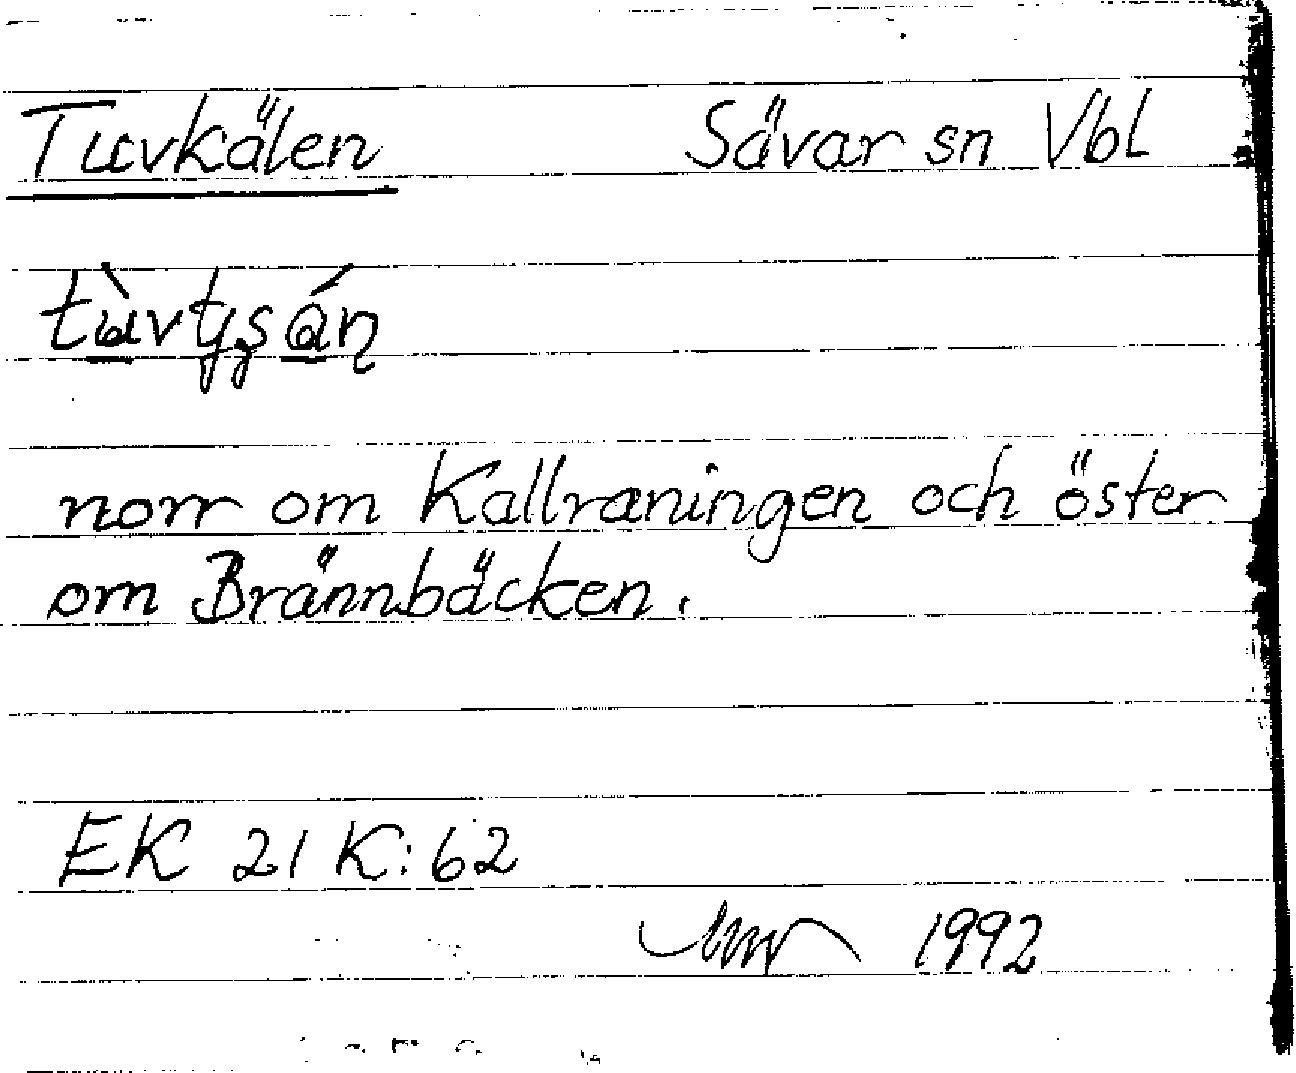 Tuvkälen Sävar sn Vbl
norr om Kallræningen och öster
om Brännbäcken.
EK 21 K:62
1992